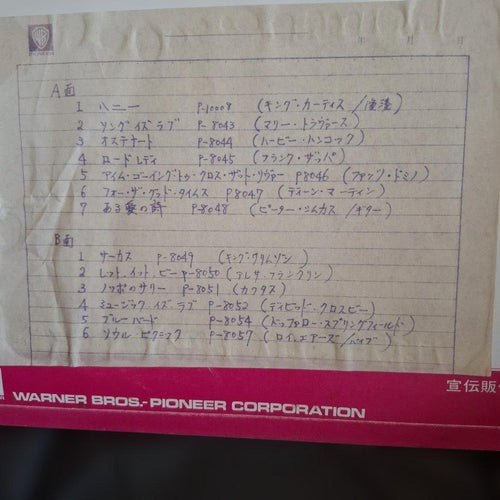 PIONEER
年 月 日
A面
1 ハニー P-10008 (キング・カーティス/
2 ソング イズ ラブ P-8043 (マリー・トラヴァース)
3 オステナート P-8044 (ハービー・ハンコック)
4 ロード レディ P-8045 (フランク・ザッパ)
5 アイム・ゴーイング トゥ・クロス・ザット・リヴァー P8046 (ファッツ・ドミノ)
6 フォー・ザ・グッド・タイムス P8047 (ディーン・マーティン)
7 ある愛の詩 P-8048 (ピーター・ニムカス/ギター)
B面
1 サーカス P-8049 (キング・クリムゾン)
2 レット・イット・ビー P-8050 (アレサ・フランクリン)
3 ノッポのサリー P-8051 (カクタス)
4 ミュージック・イズ・ラブ P-8052 (デイビッド・クロスビー)
5 ブルーバード P-8054 (バッファロー・スプリングフィールド)
6 ソウル・ピクニック P-8057 (ロイ・エアーズ/バイブ)
宣伝販
WARNER BROS.-PIONEER CORPORATION